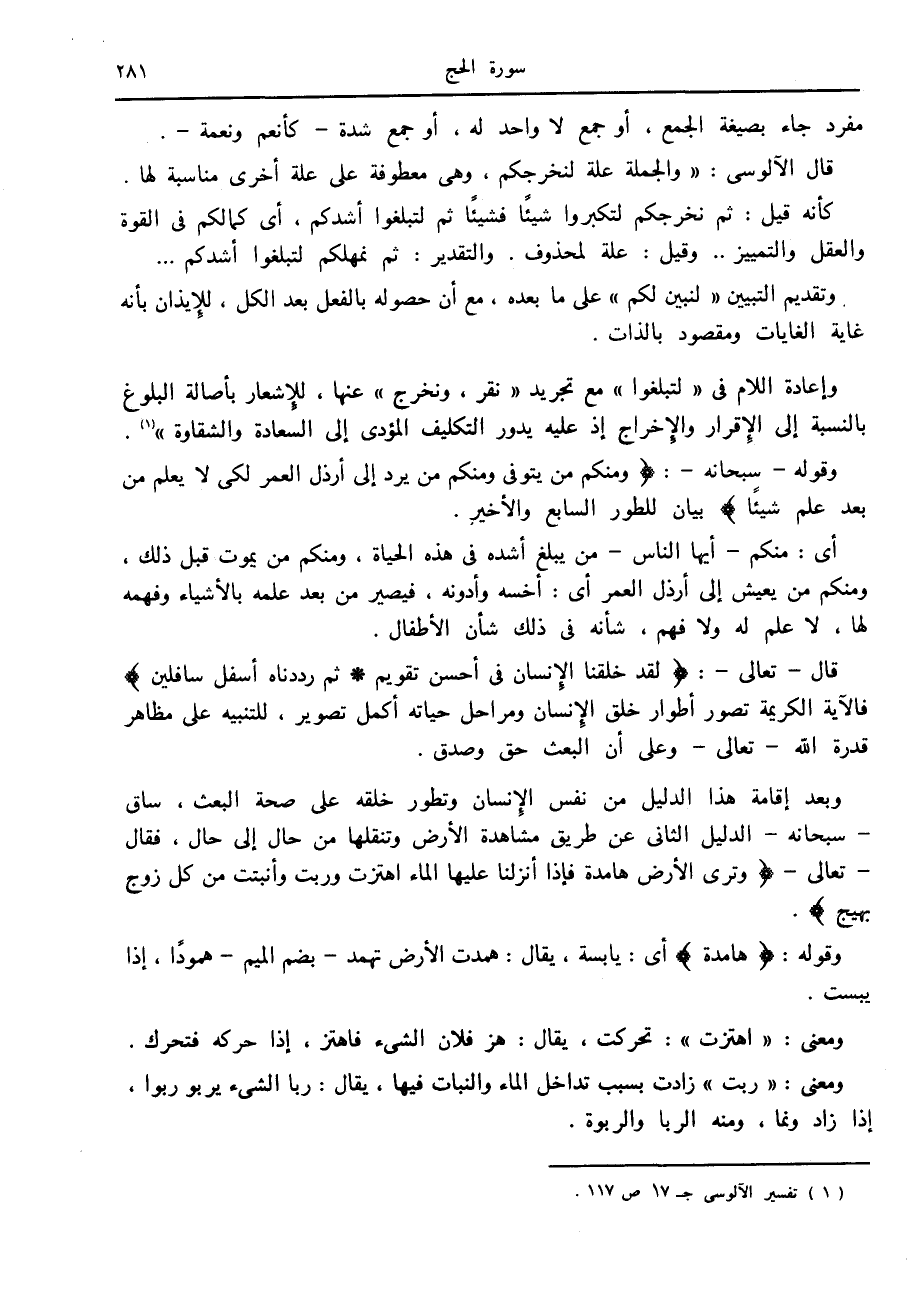 سورة الحج ٢٨١
مفرد جاء بصيغة الجمع ، أو جمع لا واحد له ، أو جمع شدة – كأنعم ونعمة – .
قال الآلوسى : « والجملة علة لنخرجكم ، وهى معطوفة على علة أخرى مناسبة لها .
كأنه قيل : ثم نخرجكم لتكبروا شيئًا فشيئًا ثم لتبلغوا أشدكم ، أى كمالكم فى القوة
والعقل والتمييز .. وقيل : علة لمحذوف . والتقدير : ثم نمهلكم لتبلغوا أشدكم ...
وتقديم التبيين « لنبين لكم » على ما بعده ، مع أن حصوله بالفعل بعد الكل ، للإيذان بأنه
غاية الغايات ومقصود بالذات .
وإعادة اللام فى « لتبلغوا » مع تجريد « نقر ، ونخرج » عنها ، للإشعار بأصالة البلوغ
بالنسبة إلى الإقرار والإخراج إذ عليه يدور التكليف المؤدى إلى السعادة والشقاوة »(١) .
وقوله – سبحانه – : ﴿ ومنكم من يتوفى ومنكم من يرد إلى أرذل العمر لكى لا يعلم من
بعد علم شيئًا ﴾ بيان للطور السابع والأخير .
أى : منكم – أيها الناس – من يبلغ أشده فى هذه الحياة ، ومنكم من يموت قبل ذلك ،
ومنكم من يعيش إلى أرذل العمر أى : أخسه وأدونه ، فيصير من بعد علمه بالأشياء وفهمه
لها ، لا علم له ولا فهم ، شأنه فى ذلك شأن الأطفال .
قال – تعالى – : ﴿ لقد خلقنا الإنسان فى أحسن تقويم * ثم رددناه أسفل سافلين ﴾
فالآية الكريمة تصور أطوار خلق الإنسان ومراحل حياته أكمل تصوير ، للتنبيه على مظاهر
قدرة الله – تعالى – وعلى أن البعث حق وصدق .
وبعد إقامة هذا الدليل من نفس الإنسان وتطور خلقه على صحة البعث ، ساق
– سبحانه – الدليل الثانى عن طريق مشاهدة الأرض وتنقلها من حال إلى حال ، فقال
– تعالى – ﴿ وترى الأرض هامدة فإذا أنزلنا عليها الماء اهتزت وربت وأنبتت من كل زوج
بهيج ﴾ .
وقوله : ﴿ هامدة ﴾ أى : يابسة ، يقال : همدت الأرض تهمد – بضم الميم – همودًا ، إذا
يبست .
ومعنى : « اهتزت » : تحركت ، يقال : هز فلان الشىء فاهتز ، إذا حركه فتحرك .
ومعنى : « ربت » زادت بسبب تداخل الماء والنبات فيها ، يقال : ربا الشىء يربو ربوا ،
إذا زاد ونما ، ومنه الربا والربوة .
( ١ ) تفسير الآلوسى جـ ١٧ ص ١١٧ .